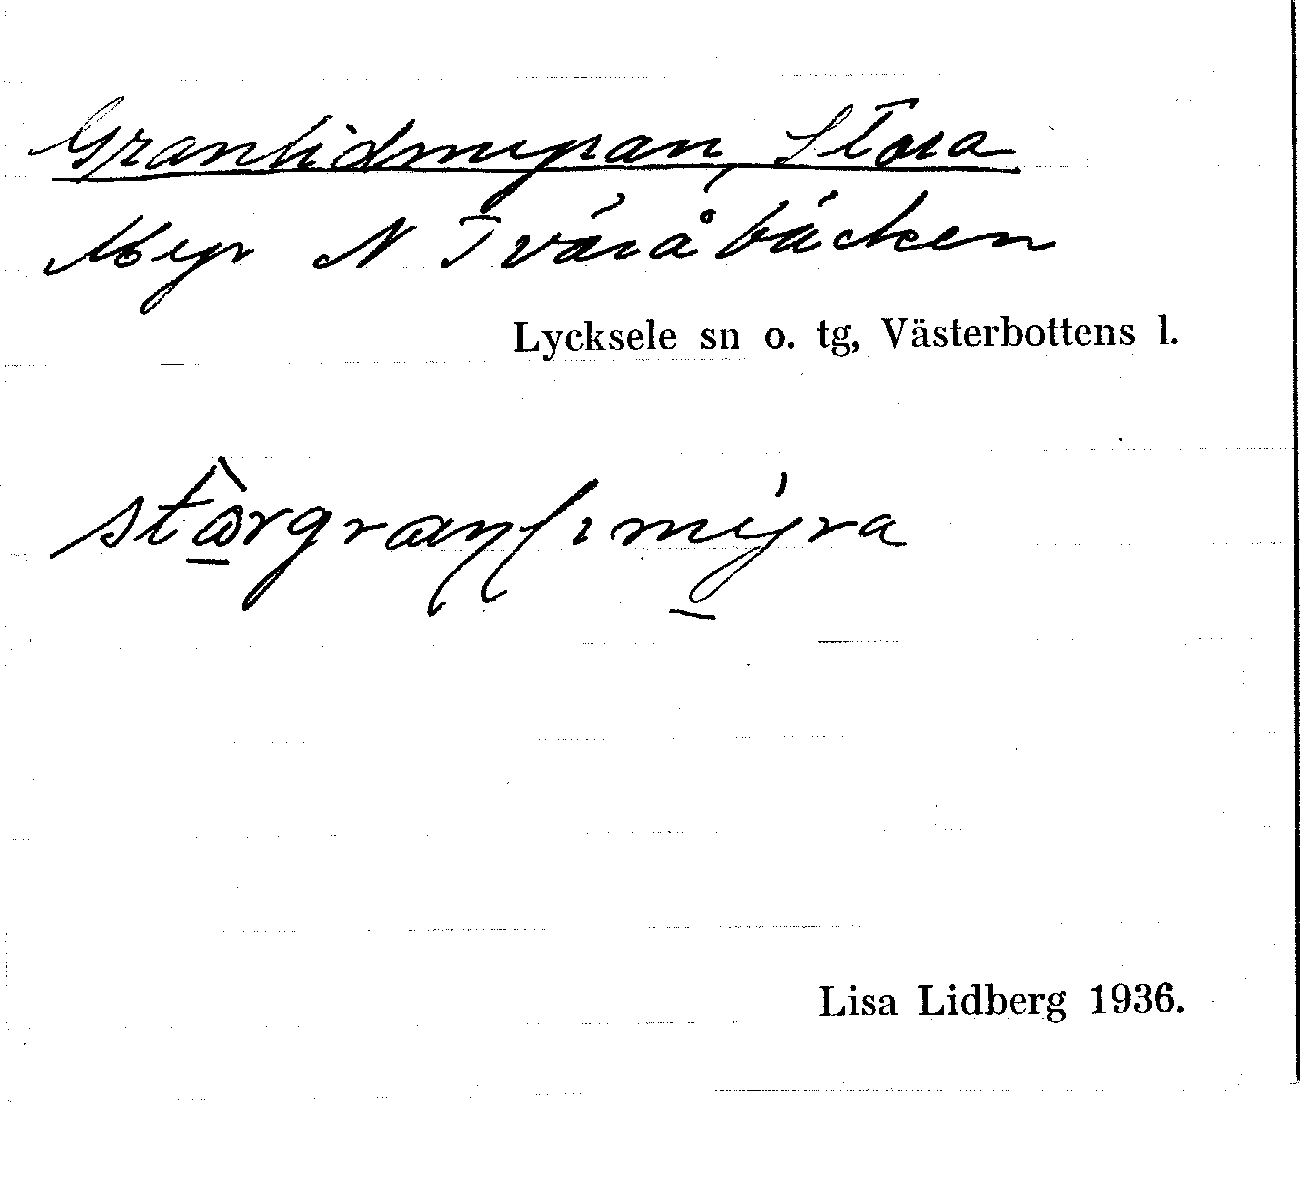 Granlidmyran, Stora
Myr N Tväråbäcken
Lycksele sn o. tg, Västerbottens l.
Lisa Lidberg 1936.